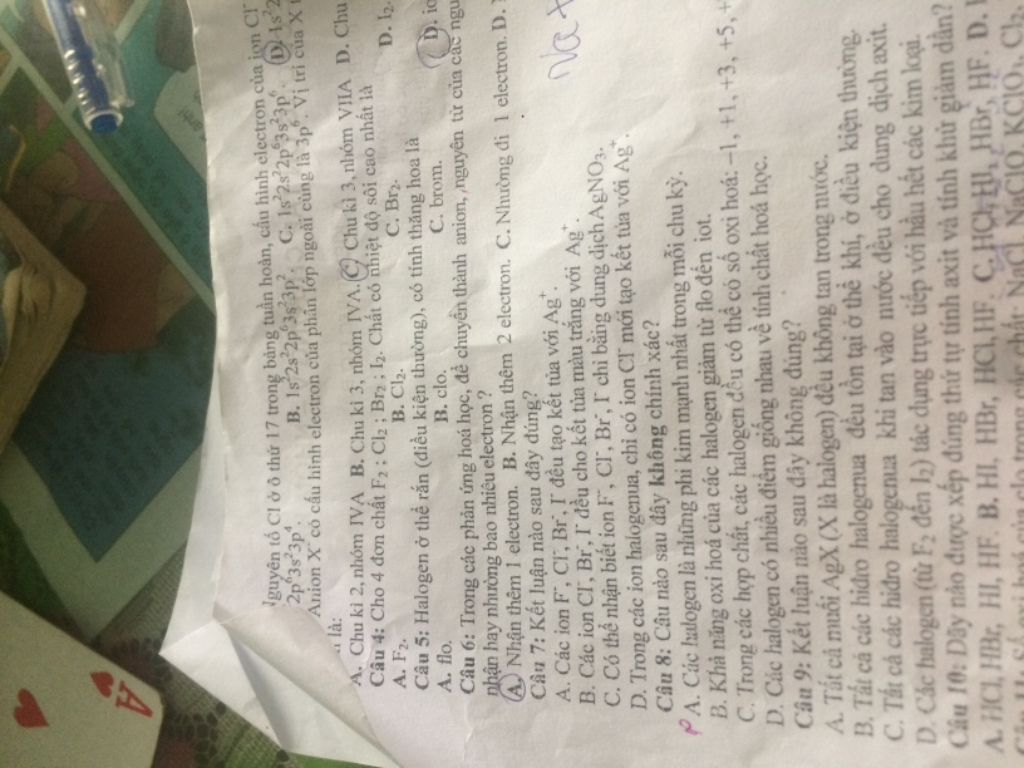 Nguyên tố Cl ở ô thứ 17 trong bảng tuần hoàn, cấu hình electron của ion Cl⁻
2p⁶3s²3p⁴. B. 1s²2s²2p⁶3s²3p². C. 1s²2s²2p⁶3s²3p⁶. D. 1s²2
Anion X⁻ có cấu hình electron của phân lớp ngoài cùng là 3p⁶. Vị trí của X t
là:
A. Chu kì 2, nhóm IVA B. Chu kì 3, nhóm IVA. C. Chu kì 3, nhóm VIIA D. Chu
Câu 4: Cho 4 đơn chất F₂ ; Cl₂ ; Br₂ ; I₂. Chất có nhiệt độ sôi cao nhất là
A. F₂. B. Cl₂. C. Br₂. D. I₂.
Câu 5: Halogen ở thể rắn (điều kiện thường), có tính thăng hoa là
A. flo. B. clo. C. brom. D. io
Câu 6: Trong các phản ứng hoá học, để chuyển thành anion, nguyên tử của các ngu
nhận hay nhường bao nhiêu electron ?
A. Nhận thêm 1 electron. B. Nhận thêm 2 electron. C. Nhường đi 1 electron. D.
Câu 7: Kết luận nào sau đây đúng?
A. Các ion F⁻, Cl⁻, Br⁻, I⁻ đều tạo kết tủa với Ag⁺.
B. Các ion Cl⁻, Br⁻, I⁻ đều cho kết tủa màu trắng với Ag⁺.
C. Có thể nhận biết ion F⁻, Cl⁻, Br⁻, I⁻ chỉ bằng dung dịch AgNO₃.
D. Trong các ion halogenua, chỉ có ion Cl⁻ mới tạo kết tủa với Ag⁺.
Câu 8: Câu nào sau đây không chính xác?
A. Các halogen là những phi kim mạnh nhất trong mỗi chu kỳ.
B. Khả năng oxi hoá của các halogen giảm từ flo đến iot.
C. Trong các hợp chất, các halogen đều có thể có số oxi hoá: −1, +1, +3, +5, +
D. Các halogen có nhiều điểm giống nhau về tính chất hoá học.
Câu 9: Kết luận nào sau đây không đúng?
A. Tất cả muối AgX (X là halogen) đều không tan trong nước.
B. Tất cả các hiđro halogenua đều tồn tại ở thể khí, ở điều kiện thường.
C. Tất cả các hiđro halogenua khi tan vào nước đều cho dung dịch axit.
D. Các halogen (từ F₂ đến I₂) tác dụng trực tiếp với hầu hết các kim loại.
Câu 10: Dãy nào được xếp đúng thứ tự tính axit và tính khử giảm dần?
A. HCl, HBr, HI, HF. B. HI, HBr, HCl, HF. C. HCl, HI, HBr, HF. D.
NaCl, NaClO, KClO₃, Cl₂,